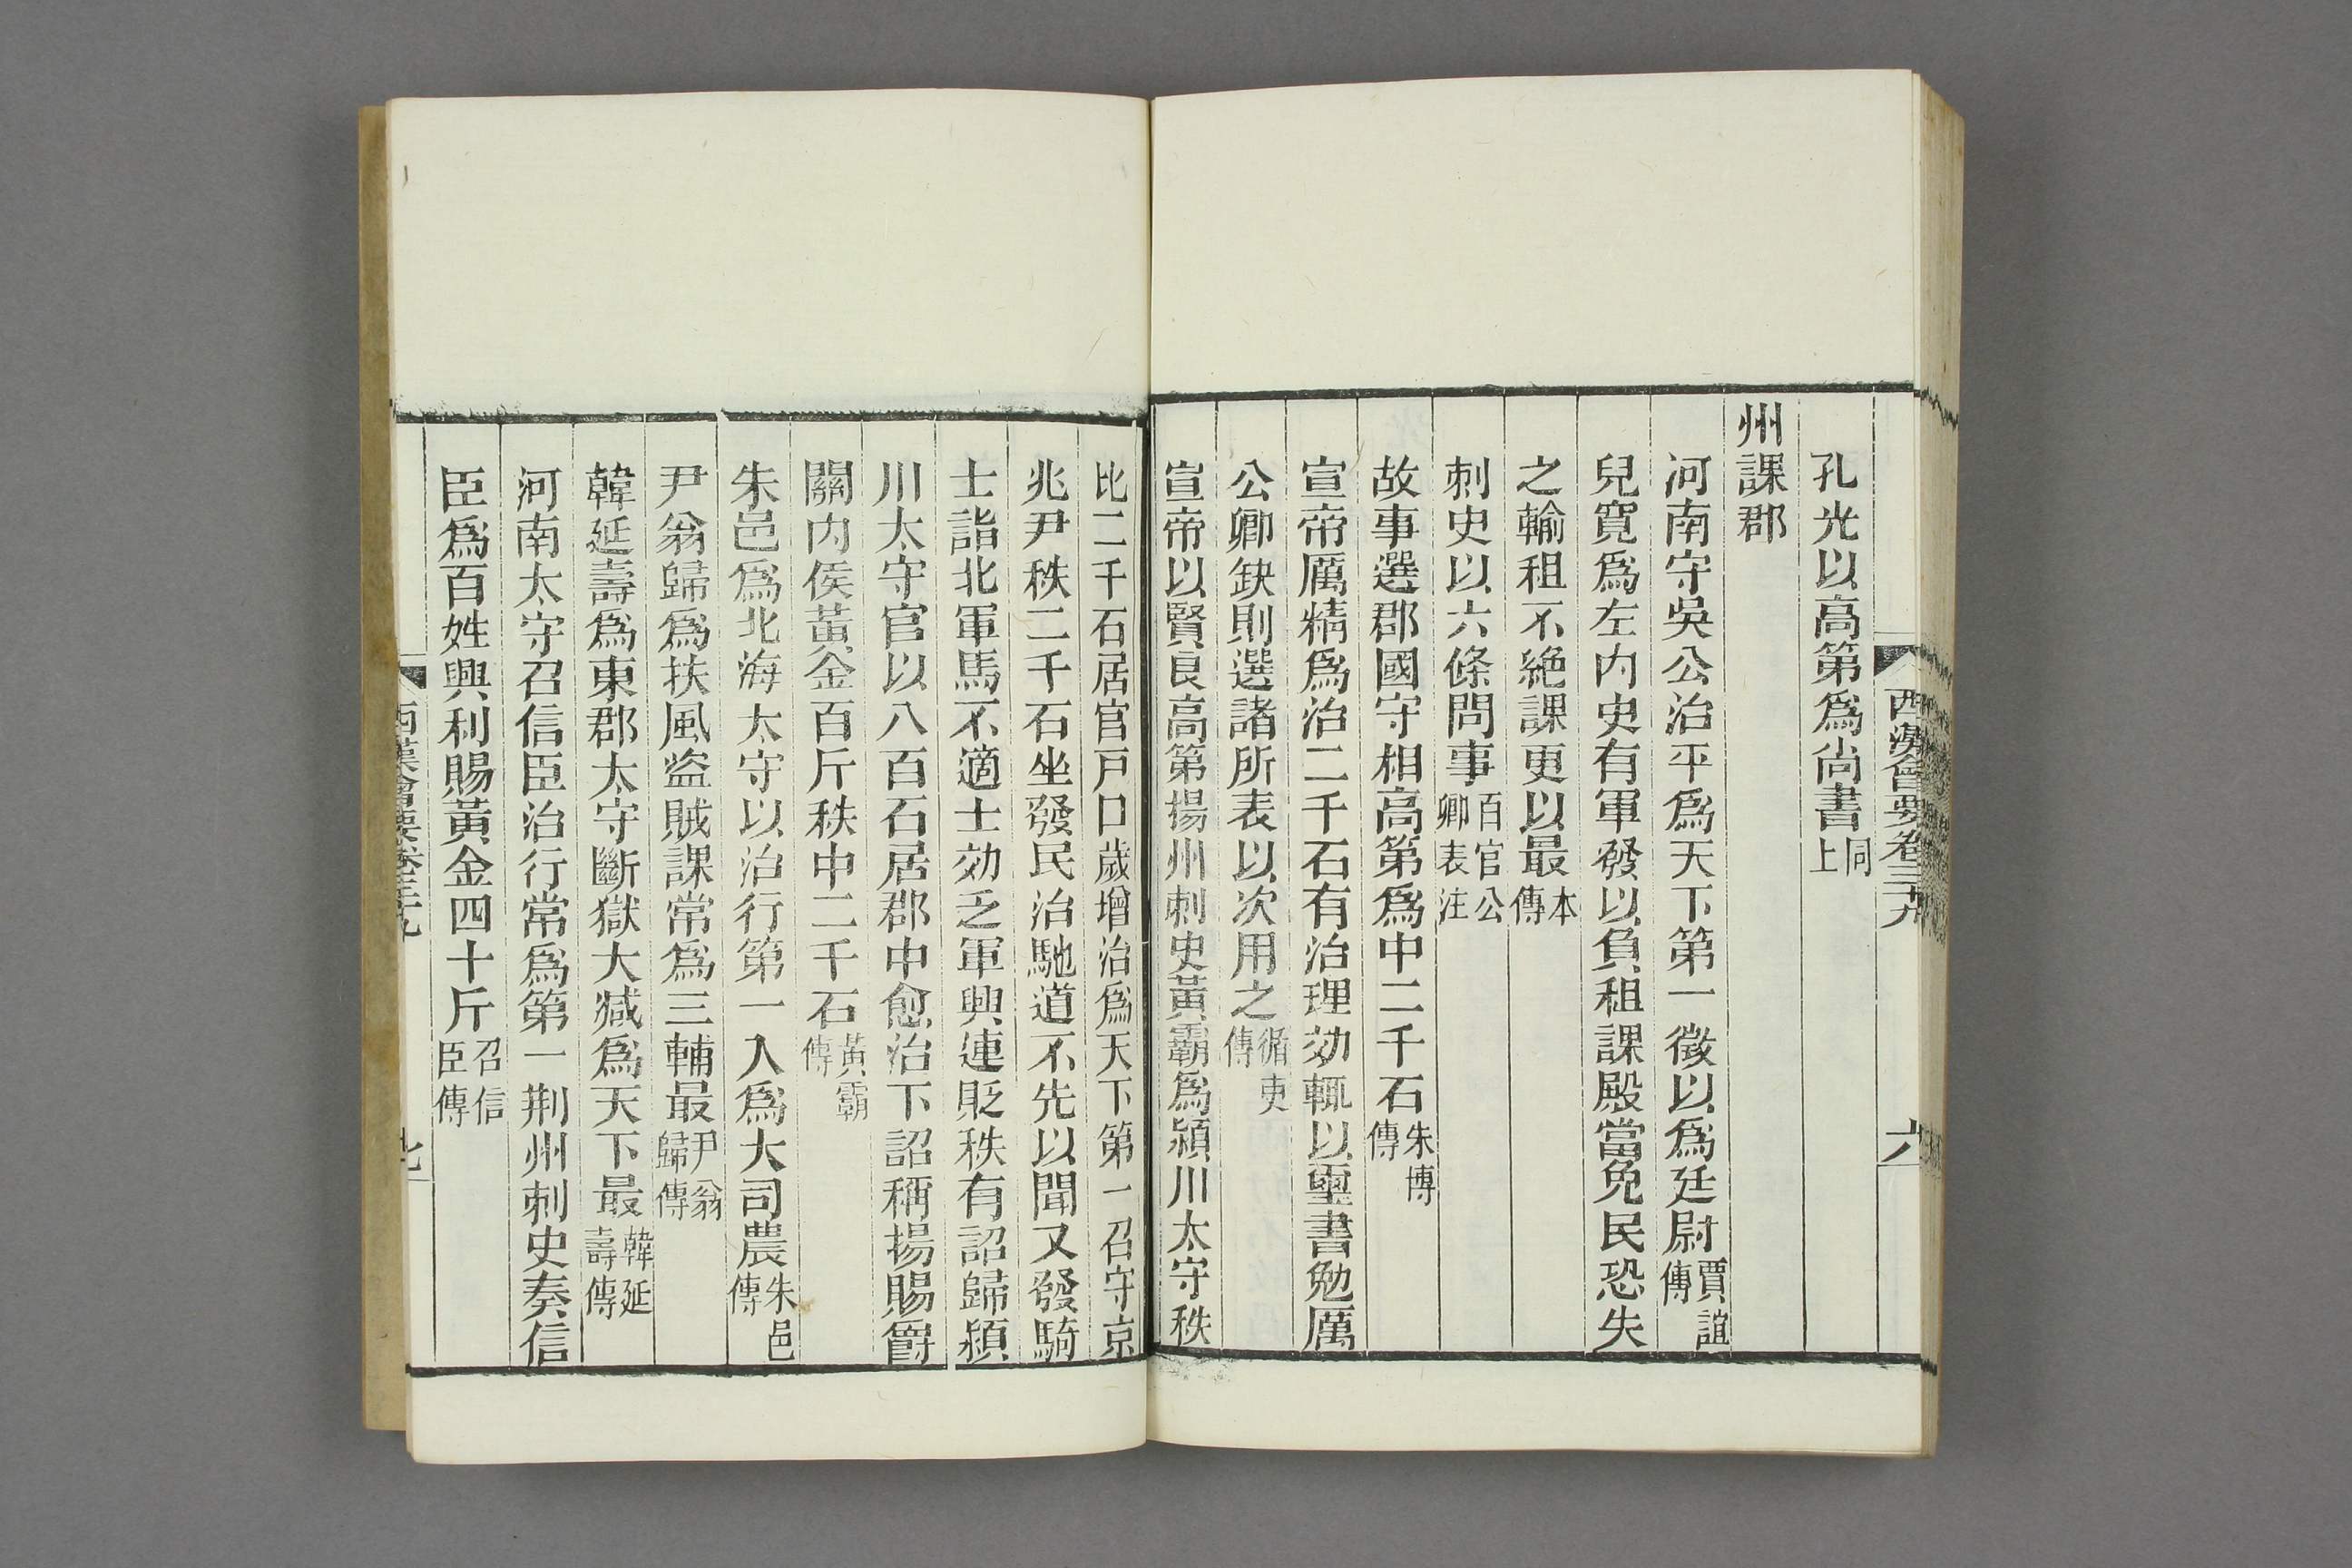 西漢會要卷三十九
六
孔光以高第爲尚書同上
州課郡
河南守吳公治平爲天下第一徵以爲廷尉賈誼傳
兒寬爲左内史有軍發以負租課殿當免民恐失
之輸租不絶課更以最本傳
刺史以六條問事百官公卿表注
故事選郡國守相高第爲中二千石朱博傳
宣帝厲精爲治二千石有治理効輒以璽書勉厲
公卿缺則選諸所表以次用之循吏傳
宣帝以賢良高第揚州刺史黃霸爲潁川太守秩
比二千石居官戸口歲增治爲天下第一召守京
兆尹秩二千石坐發民治馳道不先以聞又發騎
士詣北軍馬不適士劾乏軍興連貶秩有詔歸潁
川太守官以八百石居郡中愈治下詔稱揚賜爵
關内侯黃金百斤秩中二千石黃霸傳
朱邑爲北海太守以治行第一入爲大司農朱邑傳
尹翁歸爲扶風盜賊課常爲三輔最尹翁歸傳
韓延壽爲東郡太守斷獄大減爲天下最韓延壽傳
河南太守召信臣治行常爲第一荆州刺史奏信
臣爲百姓興利賜黃金四十斤召信臣傳
西漢會要卷三十九